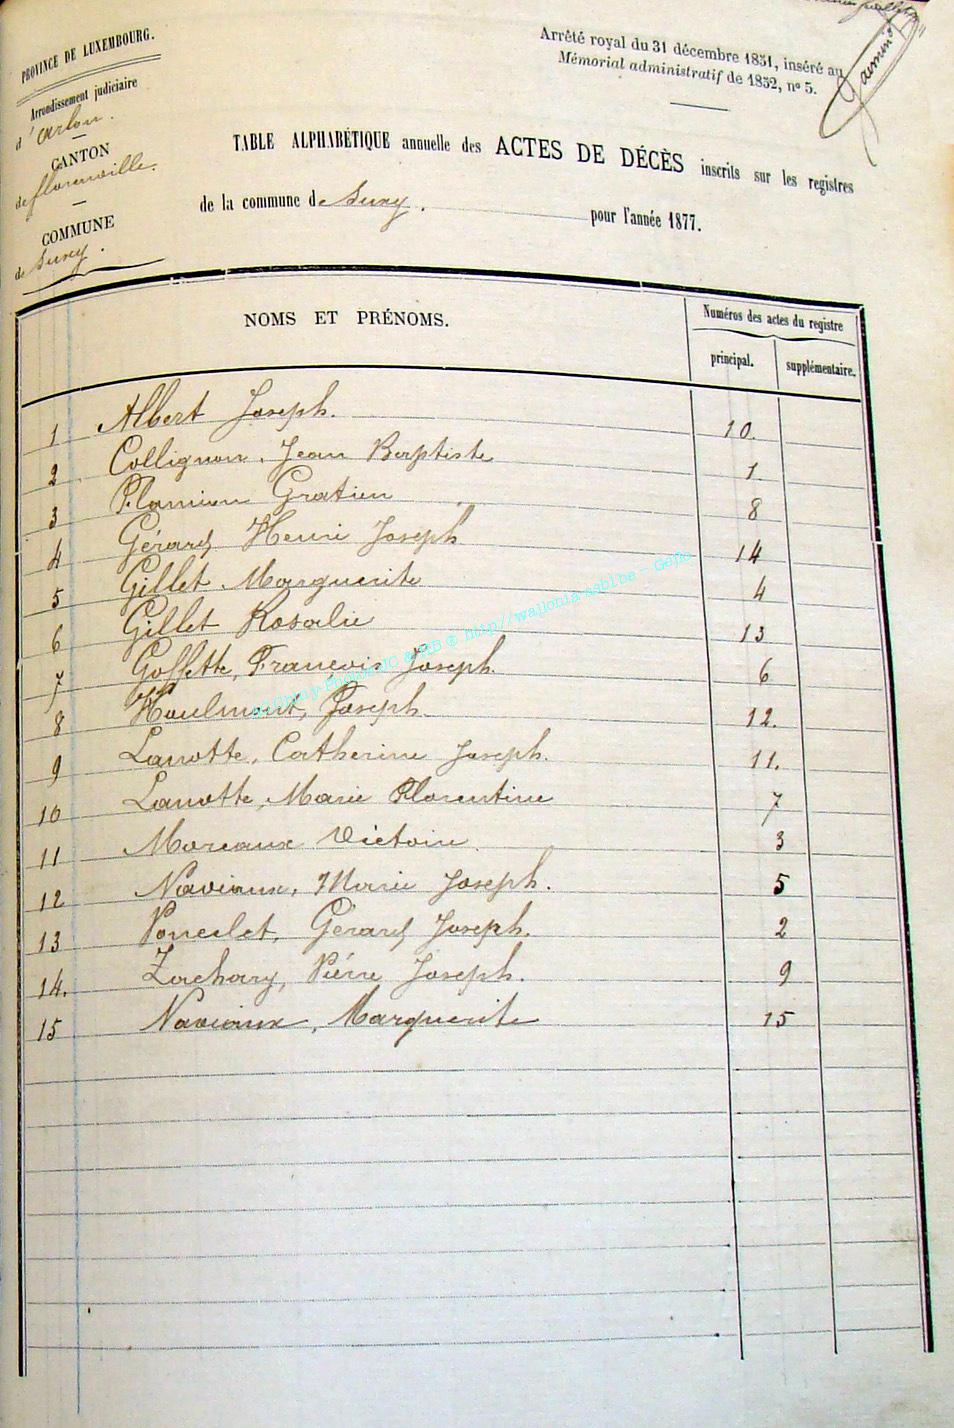 PROVINCE DE LUXEMBOURG.
Arrondissement judiciaire
d'Arlon.
CANTON
de florenville.
COMMUNE
de Suxy.
Arrêté royal du 31 décembre 1851, inséré au
Mémorial administratif de 1852, n° 5.
TABLE ALPHABÉTIQUE annuelle des ACTES DE DÉCÈS inscrits sur les registres
de la commune de Suxy. pour l'année 1877.
NOMS ET PRÉNOMS.
Numéros des actes du registre
principal. supplémentaire.
1 Albert Joseph. 10.
2 Collignon, Jean Baptiste 1
3 Flamion Gratien 8
4 Gérard Henri Joseph 14
5 Gillet Marguerite 4
6 Gillet Rosalie 13
7 Goffette, François Joseph. 6
8 Haulmont, Joseph. 12.
9 Lanotte, Catherine Joseph. 11.
10 Lanotte, Marie Florentine 7
11 Moreaux Victoire. 3
12 Naviaux, Marie Joseph. 5
13 Poncelet, Gérard Joseph. 2
14. Zachary, Piérre Joseph. 9
15 Naviaux, Marguerite 15
http//wallonia-asbl.be - Géné